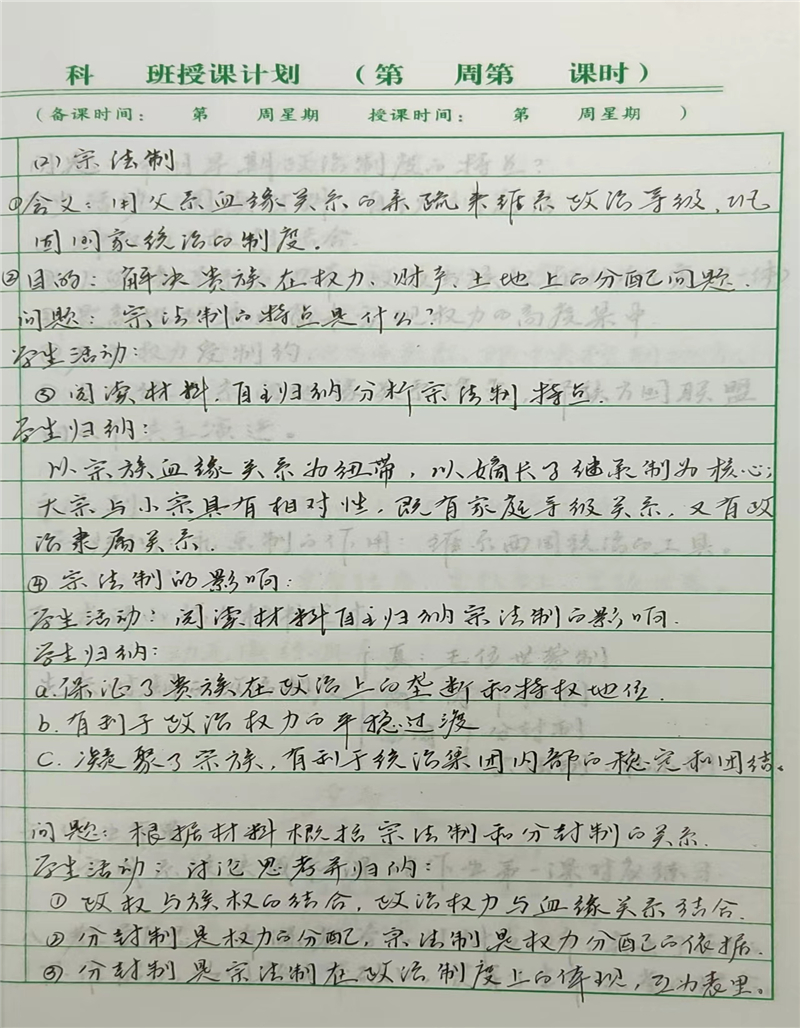 科　班授课计划　（第　周第　课时）
（备课时间：　第　周星期　授课时间：　第　周星期　）
(2) 宗法制
①含义：用父系血缘关系的亲疏来维系政治等级、巩
固国家统治的制度。
②目的：解决贵族在权力、财产、土地上的分配问题.
问题：宗法制的特点是什么？
学生活动：
③ 阅读材料.自主归纳分析宗法制特点.
学生归纳：
以宗族血缘关系为纽带，以嫡长子继承制为核心；
大宗与小宗具有相对性，既有家庭等级关系，又有政
治隶属关系.
④ 宗法制的影响：
学生活动：阅读材料自主归纳宗法制的影响.
学生归纳：
a.保证了贵族在政治上的垄断和特权地位.
b.有利于政治权力的平稳过渡
C.凝聚了宗族，有利于统治集团内部的稳定和团结。
问题：根据材料概括宗法制和分封制的关系.
学生活动：讨论思考并归纳：
① 政权与族权的结合，政治权力与血缘关系结合.
② 分封制是权力的分配，宗法制是权力分配的依据.
③ 分封制是宗法制在政治制度上的体现，互为表里。